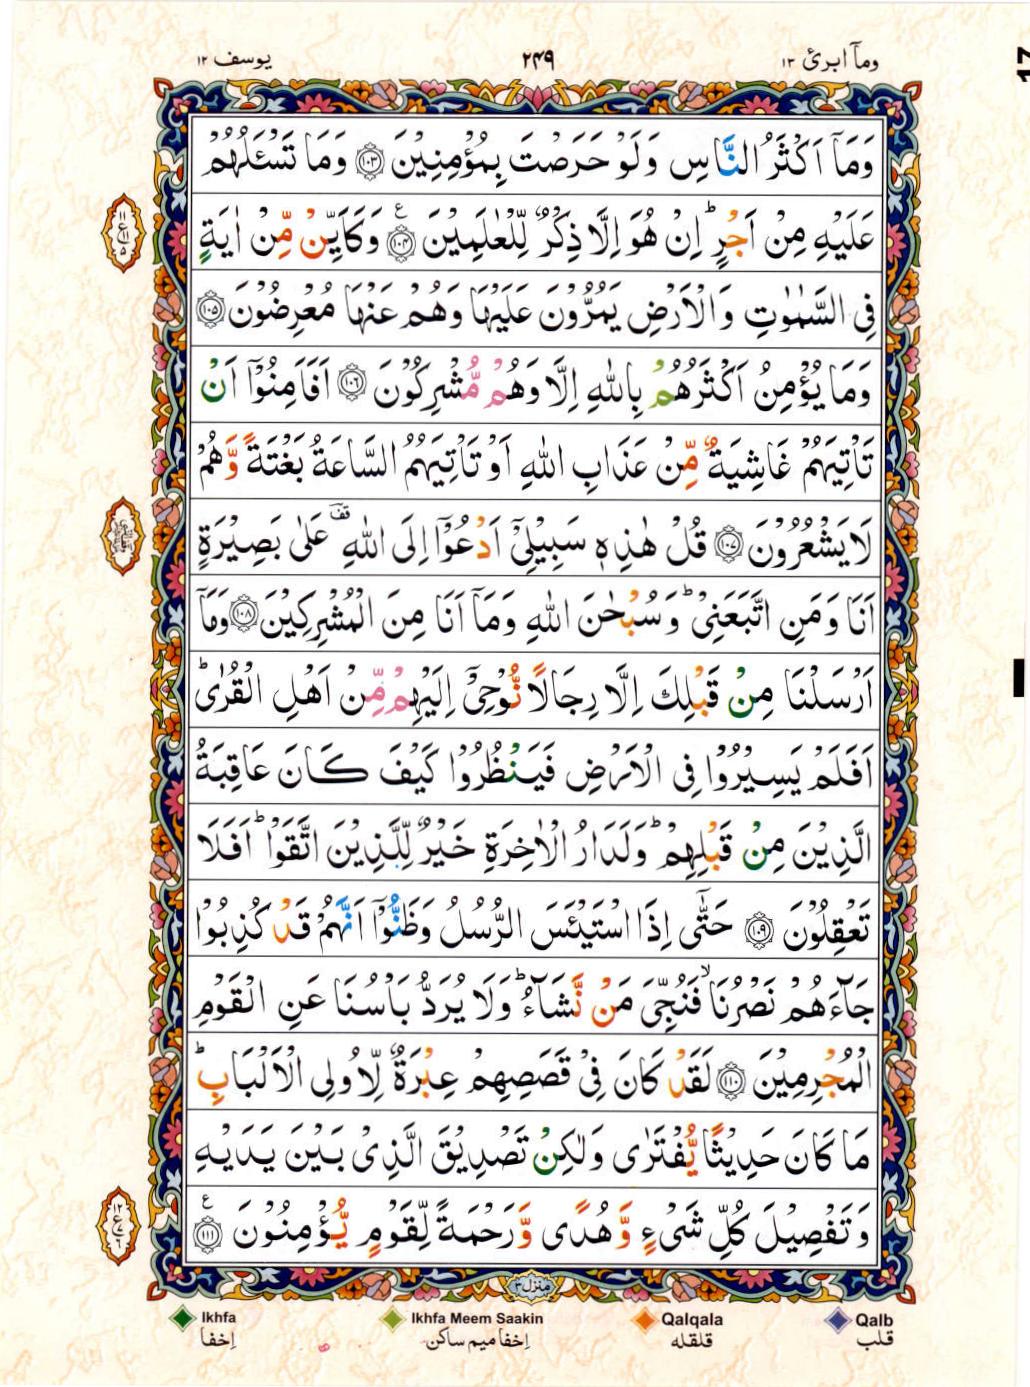 وما ابرئ ۱۳
۲۴۹
یوسف ۱۲
وَمَاۤ اَكْثَرُ النَّاسِ وَلَوْ حَرَصْتَ بِمُؤْمِنِیْنَ ۝۱۰۳ وَمَا تَسْـَٔلُهُمْ
عَلَیْهِ مِنْ اَجْرٍ ؕ اِنْ هُوَ اِلَّا ذِكْرٌ لِّلْعٰلَمِیْنَ ۝۱۰۴ ع وَكَاَیِّنْ مِّنْ اٰیَةٍ
فِی السَّمٰوٰتِ وَالْاَرْضِ یَمُرُّوْنَ عَلَیْهَا وَهُمْ عَنْهَا مُعْرِضُوْنَ ۝۱۰۵
وَمَا یُؤْمِنُ اَكْثَرُهُمْ بِاللّٰهِ اِلَّا وَهُمْ مُّشْرِكُوْنَ ۝۱۰۶ اَفَاَمِنُوْۤا اَنْ
تَاْتِیَهُمْ غَاشِیَةٌ مِّنْ عَذَابِ اللّٰهِ اَوْ تَاْتِیَهُمُ السَّاعَةُ بَغْتَةً وَّهُمْ
لَا یَشْعُرُوْنَ ۝۱۰۷ قُلْ هٰذِهٖ سَبِیْلِیْۤ اَدْعُوْۤا اِلَی اللّٰهِ قف عَلٰی بَصِیْرَةٍ
اَنَا وَمَنِ اتَّبَعَنِیْ ؕ وَسُبْحٰنَ اللّٰهِ وَمَاۤ اَنَا مِنَ الْمُشْرِكِیْنَ ۝۱۰۸ وَمَاۤ
اَرْسَلْنَا مِنْ قَبْلِكَ اِلَّا رِجَالًا نُّوْحِیْۤ اِلَیْهِمْ مِّنْ اَهْلِ الْقُرٰی ؕ
اَفَلَمْ یَسِیْرُوْا فِی الْاَرْضِ فَیَنْظُرُوْا كَیْفَ كَانَ عَاقِبَةُ
الَّذِیْنَ مِنْ قَبْلِهِمْ ؕ وَلَدَارُ الْاٰخِرَةِ خَیْرٌ لِّلَّذِیْنَ اتَّقَوْا ؕ اَفَلَا
تَعْقِلُوْنَ ۝۱۰۹ حَتّٰۤی اِذَا اسْتَیْـَٔسَ الرُّسُلُ وَظَنُّوْۤا اَنَّهُمْ قَدْ كُذِبُوْا
جَآءَهُمْ نَصْرُنَا ۙ فَنُجِّیَ مَنْ نَّشَآءُ ؕ وَلَا یُرَدُّ بَاْسُنَا عَنِ الْقَوْمِ
الْمُجْرِمِیْنَ ۝۱۱۰ لَقَدْ كَانَ فِیْ قَصَصِهِمْ عِبْرَةٌ لِّاُولِی الْاَلْبَابِ ؕ
مَا كَانَ حَدِیْثًا یُّفْتَرٰی وَلٰكِنْ تَصْدِیْقَ الَّذِیْ بَیْنَ یَدَیْهِ
وَتَفْصِیْلَ كُلِّ شَیْءٍ وَّهُدًی وَّرَحْمَةً لِّقَوْمٍ یُّؤْمِنُوْنَ ۝۱۱۱ ع
منزل ۳
Ikhfa
Ikhfa Meem Saakin
Qalqala
Qalb
اِخفا
اِخفا میم ساکن
قلقله
قلب
17